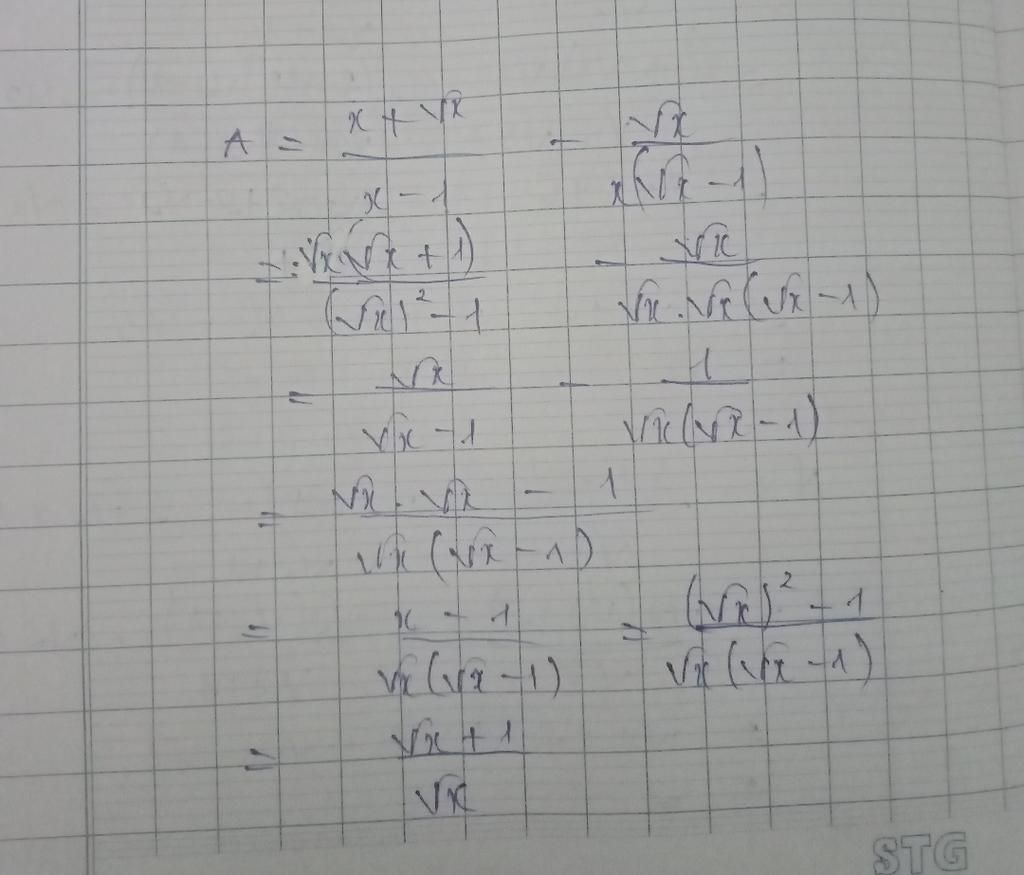 A = \frac{x + \sqrt{x}}{x - 1} - \frac{\sqrt{x}}{x(\sqrt{x} - 1)}
= \frac{\sqrt{x}(\sqrt{x} + 1)}{(\sqrt{x})^2 - 1} - \frac{\sqrt{x}}{\sqrt{x} . \sqrt{x}(\sqrt{x} - 1)}
= \frac{\sqrt{x}}{\sqrt{x} - 1} - \frac{1}{\sqrt{x}(\sqrt{x} - 1)}
= \frac{\sqrt{x} . \sqrt{x} - 1}{\sqrt{x}(\sqrt{x} - 1)}
= \frac{x - 1}{\sqrt{x}(\sqrt{x} - 1)} = \frac{(\sqrt{x})^2 - 1}{\sqrt{x}(\sqrt{x} - 1)}
= \frac{\sqrt{x} + 1}{\sqrt{x}}
STG